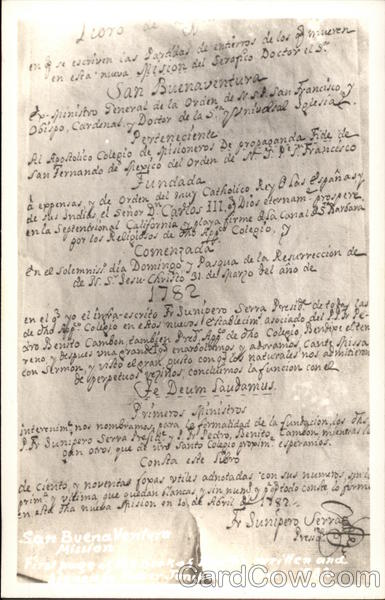 Libro de
en q. se escriven las Partidas de entierros de los q. mueren
en esta nueva Mision del Serafico Doctor el Sr.
San Buenaventura
Ex-Ministro General de la Orden de N. S. P. San Francisco, y
Obispo, Cardenal, y Doctor de la Sta. Universal Iglesia.
Perteneciente
Al Apostolico Colegio de Misioneros De propaganda Fide de
San Fernando de Mexico del Orden de N. S. P. Sn. Francisco
Fundada
à expensas, y de Orden del muy Catholico Rey D las Españas, y
de sus Indias, el Señor D. Carlos III, q. Dios eternamte. prospere
en la Septentrional California y playa firme D la Canal D Sta. Barbara
por los Religiosos de dho Appco. Colegio, y
Comenzada
en el Solemnisso. dia Domingo y Pasqua de la Resurreccion de
de N. Sr. Jesu-Christo 31 de Marzo del año de
1782
en el q. yo el infra-escrito Fr. Junipero Serra Presidte. de todas las
de dho Appco. Colegio en estos nuevos Establecimtos. asociado del P. Fr. Pe-
dro Benito Cambon, tambien Pred. Appco. de dho Colegio, Bendixe el ter-
reno, y despues una grande Cruz enarbolamos y adoramos, Cante Missa
con Sermon, y visto el gran gusto con q. los naturales nos admitieron
de perpetuos vecinos concluimos la funcion con el
Te Deum Laudamus.
Primeros Ministros
interinamte. nos nombramos, para la formalidad de la Fundacion, los dhos
P. Fr. Junipero Serra Presidte. y P. Fr. Pedro Benito Cambon mientras lle-
gan otros que de nro Santo Colegio proximte. esperamos.
Consta este Libro
de ciento y noventas foxas utiles adnotadas con sus numeros, sin la
prima. y ultima que quedan blancas y sin num. y pa. q. todo conste lo firme
en esta dha nueva Mision en 10 de Abril de 1782.
Fr. Junipero Serra
Presidte.
San Buenaventura
Mission
First page of Records written and
CardCow.com